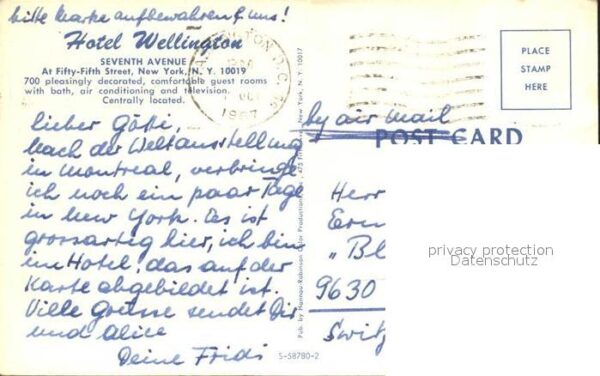 bitte Marke aufbewahren f. uns!
Hotel Wellington
SEVENTH AVENUE
At Fifty-Fifth Street, New York, N. Y. 10019
700 pleasingly decorated, comfortable guest rooms
with bath, air conditioning and television.
Centrally located.
1967
PLACE
STAMP
HERE
by air mail
POST CARD
lieber Götti,
Nach der Weltausstellung
in Montreal, verbringe
ich noch ein paar Tage
in New York. Es ist
grossartig hier, ich bin
im Hotel, das auf der
Karte abgebildet ist.
Ville Grüsse sendet Dir
und Alice
Deine Fridi
Herr
Ern
"Bl
9630
Switz
privacy protection
Datenschutz
Pub. by Color Productions New York, N.Y. 10017
S-58780-2